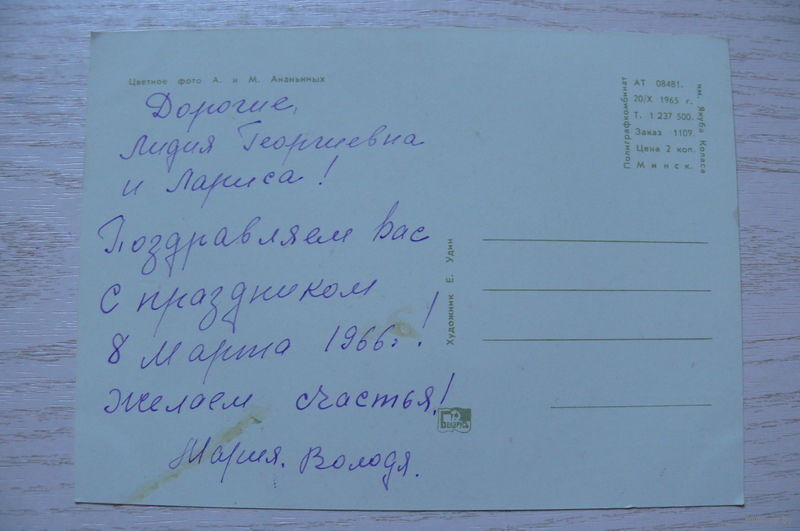 Цветное фото А. и М. Ананьиных
Дорогие,
Лидия Георгиевна
и Лариса!
Поздравляем Вас
с праздником
8 марта 1966г.!
Желаем счастья!
Мария. Володя.
Художник Е. Удин
Беларусь
Полиграфкомбинат
АТ 08481.
20/X 1965 г.
Т. 1 237 500.
Заказ 1109.
Цена 2 коп.
Минск.
им. Якуба Коласа